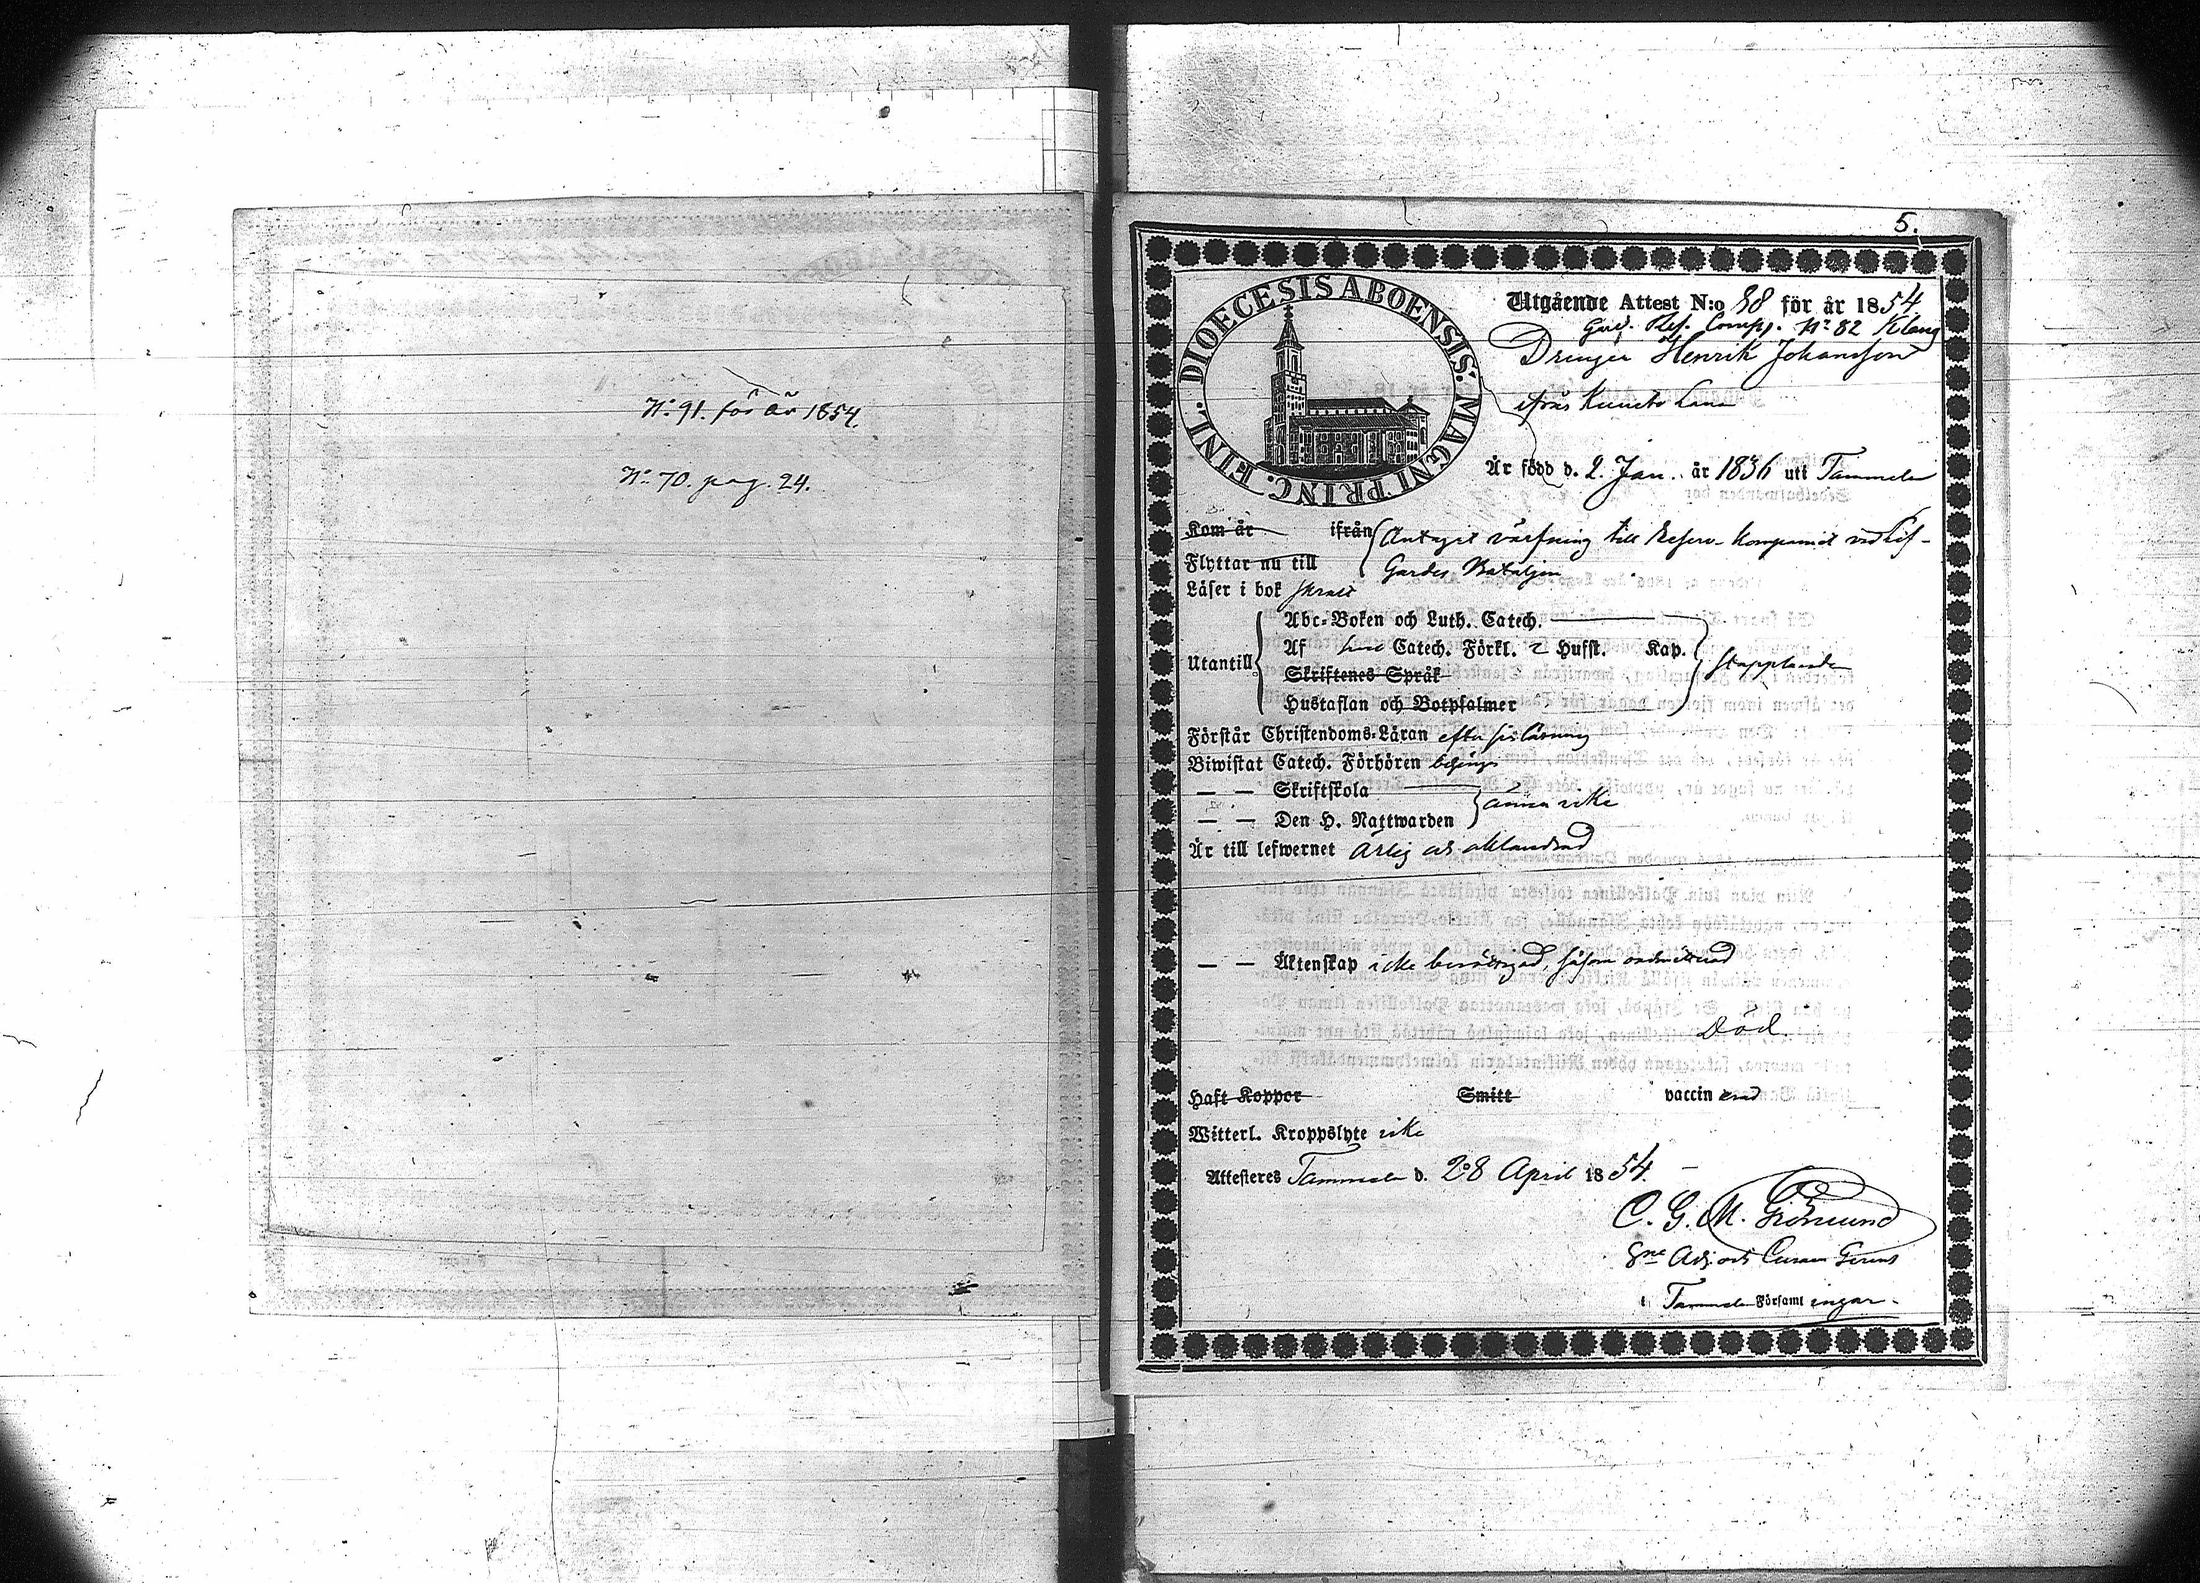 N:o 91. för år 1854.
N:o 70. pag. 24.
5.
DIOECESIS ABOENSIS. MAGNI PRINC. FINL.
Utgående Attest N:o 38 för år 1854.
Gard. Res. Comp. N:o 82 Klang
Drengen Henrik Johansson
ifrån
Är född d. 2. Jan. år 1836 uti Tammela
Kom år ifrån
Antagit värfning till Reserv-kompaniet vid Lif-
Flyttar nu till
Gardes Bataljon
Läser i bok
Abc-Boken och Luth. Catech.
Utantill
Af Catech. Förkl. Husst. Kap.
stapplande
Skriftenes Språk
Hustaflan och Botpsalmer
Förstår Christendoms-Läran efter
Biwistat Catech. Förhören
— — Skriftskola
ännu icke
— — Den H. Nattwarden
Är till lefwernet ärlig och oklandrad
— — Äktenskap icke berättigad, såsom oadmitterad
Död.
Haft Koppor Smitt vaccinerad
Witterl. Kroppslyte icke
Attesteres Tammela d. 28 April 1854.
C. G. M. Grönlund
Adj. och Curam Gerens
i Tammela Församlingar.